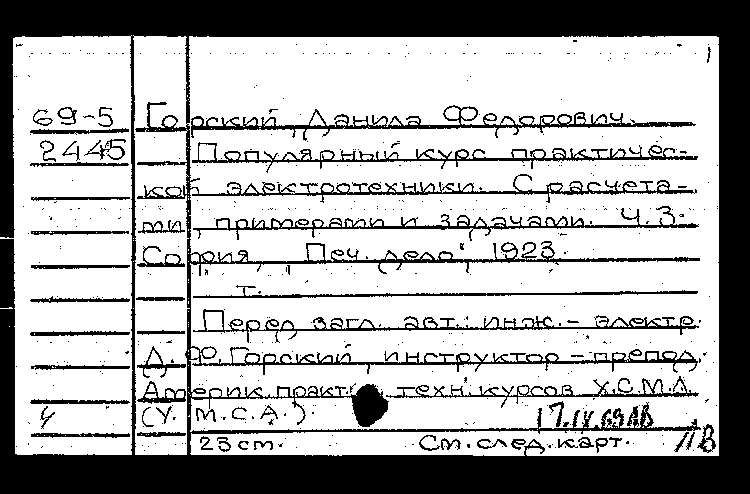 69-5 Горский, Данила Федорович.
2445 Популярный курс практичес-
кой электротехники. С расчета-
ми, примерами и задачами. Ч. 3.
София, "Печ. дело", 1923.
т.
Перед загл. авт.: инж.-электр.
Д. Ф. Горский, инструктор-препод.
Америк. практ. техн. курсов Х.С.М.Л.
(Y. M. C. A.) 17.IX.69
23 cm. См. след. карт.